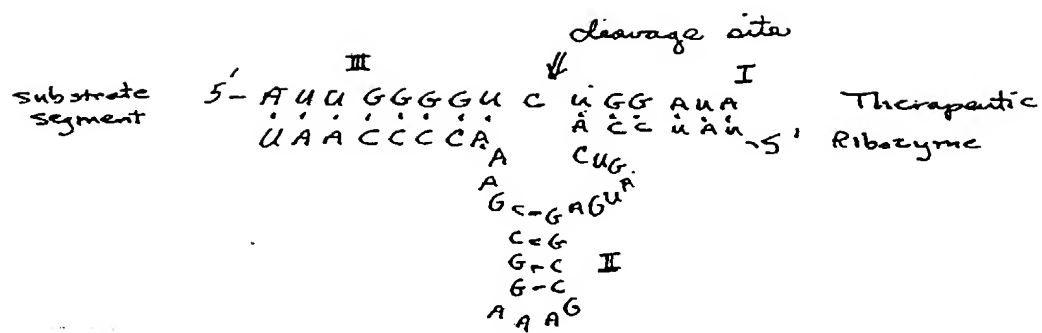 cleavage site
III
I
substrate segment 5'- A U U G G G G U C U G G A U A Therapeutic Ribozyme
U A A C C C C A A C C U A U -5'
A C U G
A A
G C - G A G U
C - G
G - C II
G - C
A A A G